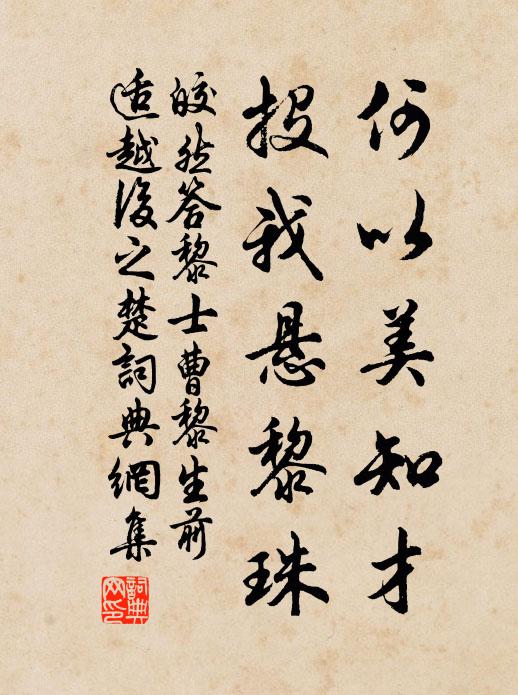 何以美知才
投我悬黎珠
皎然答黎士曹黎生前
适越後之楚詞典網集
詞典网印